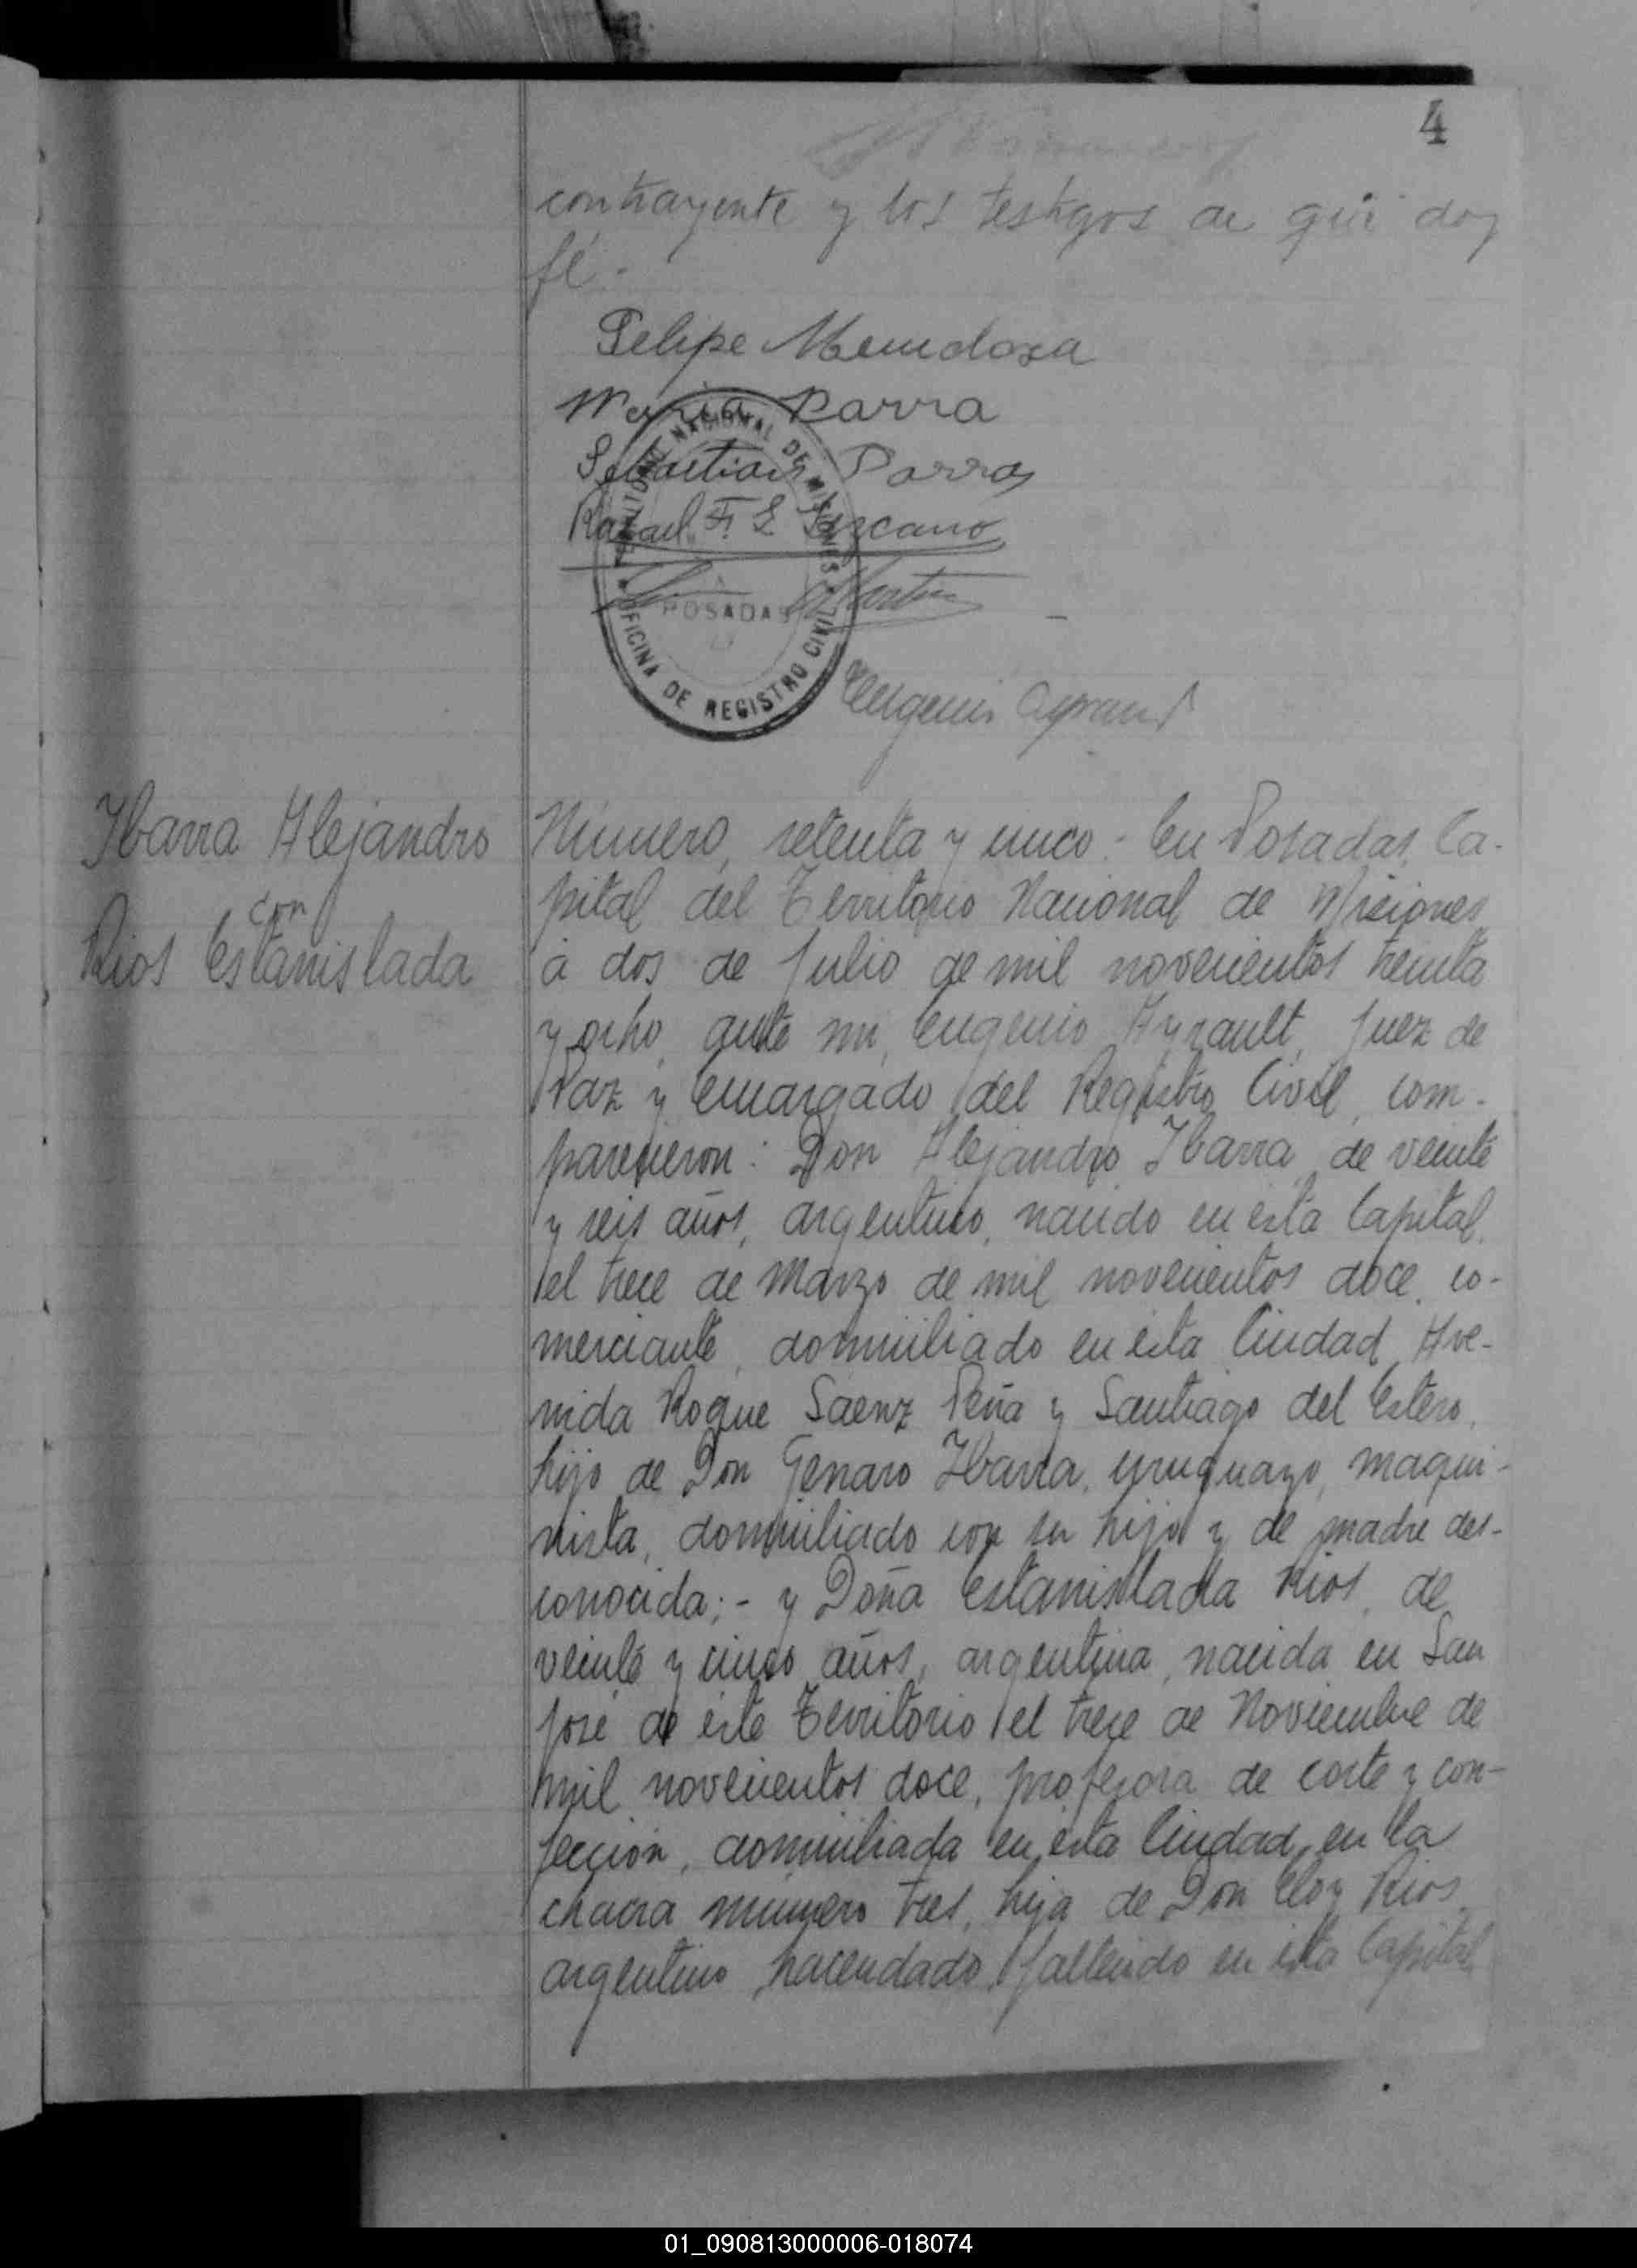 4
contrayente y los testigos de que doy
fé.-
Felipe Mendoza
Maria Parra
Sebastian Parra
Rafael F. L. Lezcano
Martin
TERRITORIO NACIONAL DE MISIONES
POSADAS
OFICINA DE REGISTRO CIVIL
Eugenio Ayrault
Ibarra Alejandro
con
Rios Estanislada
Número, setenta y cinco.- En Posadas, Ca-
pital del Territorio Nacional de Misiones,
á dos de Julio de mil novecientos treinta
y ocho, ante mi, Eugenio Ayrault, Juez de
Paz y Encargado del Registro Civil, com-
parecieron: Don Alejandro Ibarra, de veinte
y seis años, argentino, nacido en esta Capital,
el trece de Marzo de mil novecientos doce, co-
merciante, domiciliado en esta Ciudad, Ave-
nida Roque Saenz Peña y Santiago del Estero,
hijo de Don Genaro Ibarra, uruguayo, maqui-
nista, domiciliado con su hijo y de madre des-
conocida;- y Doña Estanislada Rios, de
veinte y cinco años, argentina, nacida en San
José de éste Territorio el trece de Noviembre de
mil novecientos doce, profesora de corte y con-
fección, domiciliada en esta Ciudad, en la
chacra número tres, hija de Don Eloy Rios,
argentino, hacendado, fallecido en esta Capital,
01_090813000006-018074